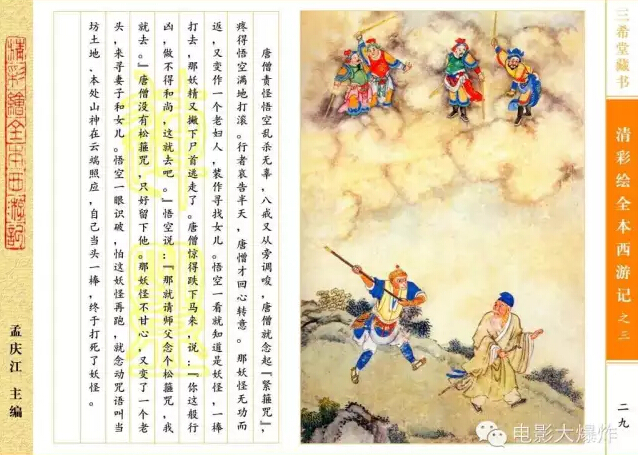 三希堂藏书
清彩绘全本西游记之三
二九
唐僧责怪悟空乱杀无辜，八戒又从旁调唆，唐僧就念起『紧箍咒』，
疼得悟空满地打滚。行者哀告半天，唐僧才回心转意。那妖精无功而
返，又变作一个老妇人，装作寻找女儿。悟空一看就知道是妖怪，一棒
打去，那妖精又撇下尸首逃走了。唐僧惊得跌下马来，说：『你这般行
凶，做不得和尚，这就去吧。』悟空说：『那就请师父念个松箍咒，我
就去。』唐僧没有松箍咒，只好留下他。那妖怪不甘心，又变了一个老
头，来寻妻子和女儿。悟空一眼识破，怕这妖怪再跑，就念动咒语叫当
坊土地、本处山神在云端照应，自己当头一棒，终于打死了妖怪。
清彩繪全本西游記
孟庆江 主编
电影大爆炸